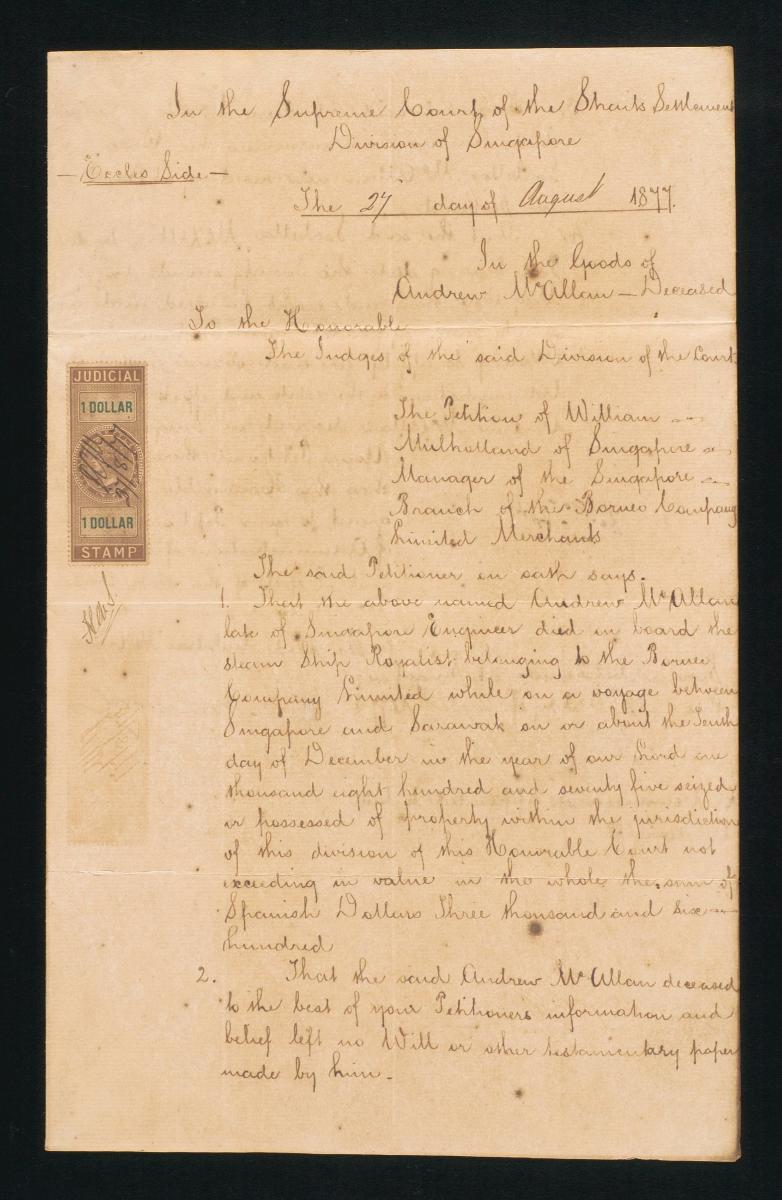 In the Supreme Court of the Straits Settlement
Division of Singapore
— Eccles Side —
The 27 day of August 1877.
In the Goods of
Andrew McAllan — Deceased
To the Honorable
The Judges of the said Division of the Court
JUDICIAL
1 DOLLAR
1 DOLLAR
STAMP
The Petition of William
Mulholland of Singapore
Manager of the Singapore
Branch of the Borneo Company
Limited Merchants
The said Petitioner on oath says.
1. That the above named Andrew McAllan
late of Singapore Engineer died on board the
steam Ship Royalist belonging to the Borneo
Company Limited while on a voyage between
Singapore and Sarawak on or about the Tenth
day of December in the year of our Lord one
thousand eight hundred and seventy five seized
or possessed of property within the jurisdiction
of this division of this Honorable Court not
exceeding in value in the whole the sum of
Spanish Dollars Three thousand and six —
hundred
2. That the said Andrew McAllan deceased
to the best of your Petitioners information and
belief left no Will or other testamentary paper
made by him —